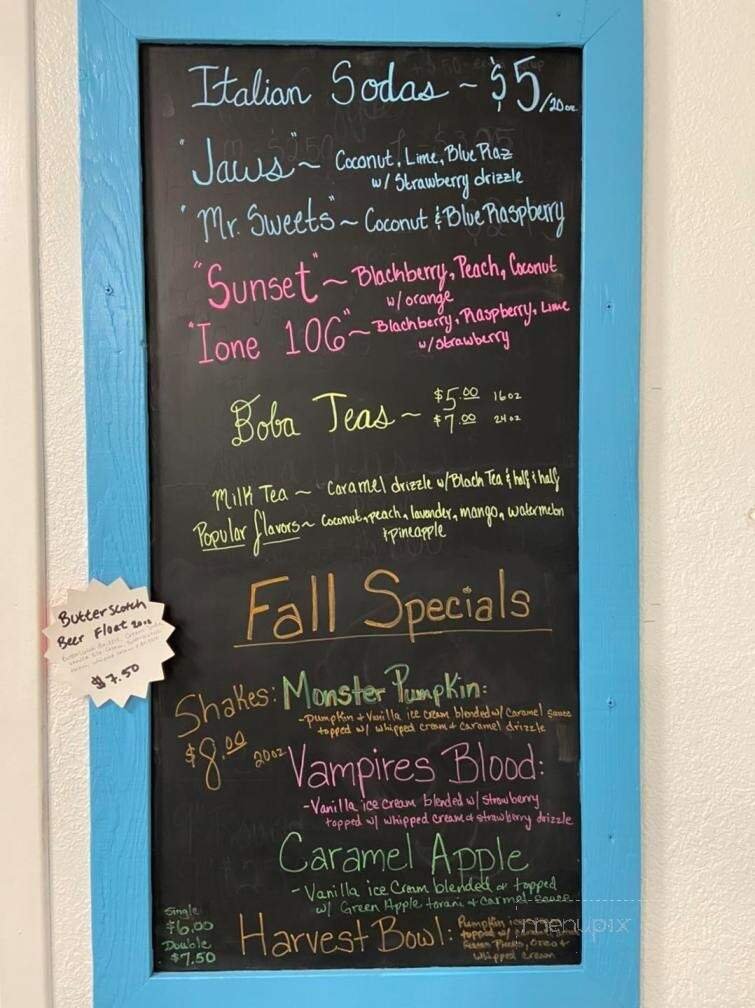 Italian Sodas ~ $5/20oz
"Jaws" ~ Coconut, Lime, Blue Raz
w/ Strawberry drizzle
"Mr. Sweets" ~ Coconut & Blue Raspberry
"Sunset" ~ Blackberry, Peach, Coconut
w/orange
"Ione 106" ~ Blackberry, Raspberry, Lime
w/strawberry
Boba Teas ~ $5.00 16oz
$7.00 24oz
Milk Tea ~ Caramel drizzle w/Black Tea & half & half
Popular flavors ~ Coconut, peach, lavender, mango, watermelon
& pineapple
Fall Specials
Butterscotch
Beer Float 20oz
$7.50
Shakes: Monster Pumpkin:
$8.00 20oz
- Pumpkin + Vanilla ice cream blended w/ Caramel sauce
topped w/ whipped cream + caramel drizzle
Vampires Blood:
- Vanilla ice cream blended w/ strawberry
topped w/ whipped cream & strawberry drizzle
Caramel Apple
- Vanilla ice cream blended or topped
w/ Green Apple torani + carmel sauce
Single
$6.00
Double
$7.50
Harvest Bowl: Pumpkin
topped w/
Oreo +
whipped cream
menupix